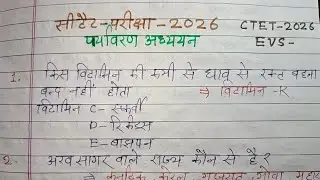 सीटैट-परीक्षा-2026 CTET-2026
पर्यावरण अध्ययन EVS-
1. किस विटामिन की कमी से घाव से रक्त बहना
बन्द नहीं होता ⇒ विटामिन -K
विटामिन C- स्कर्वी
D- रिकेट्स
E- बाझपन
2. अरब सागर वाले राज्य कौन से है?
⇒ कर्नाटक, केरल, गुजरात, गोवा, महारा